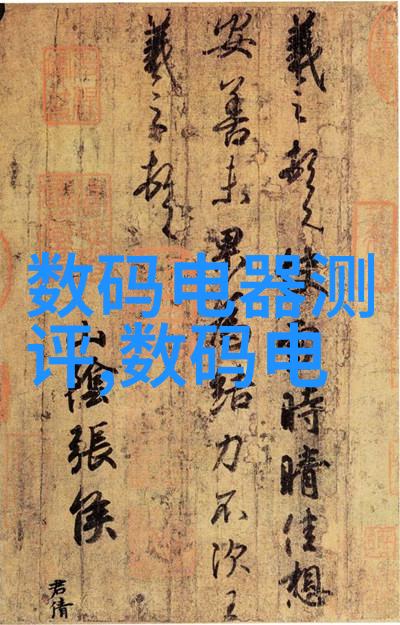 数码电器测
评,数码电
羲之頓首快雪時晴佳想
安善未果為結力不次王
羲之頓首
山陰張侯
君倩